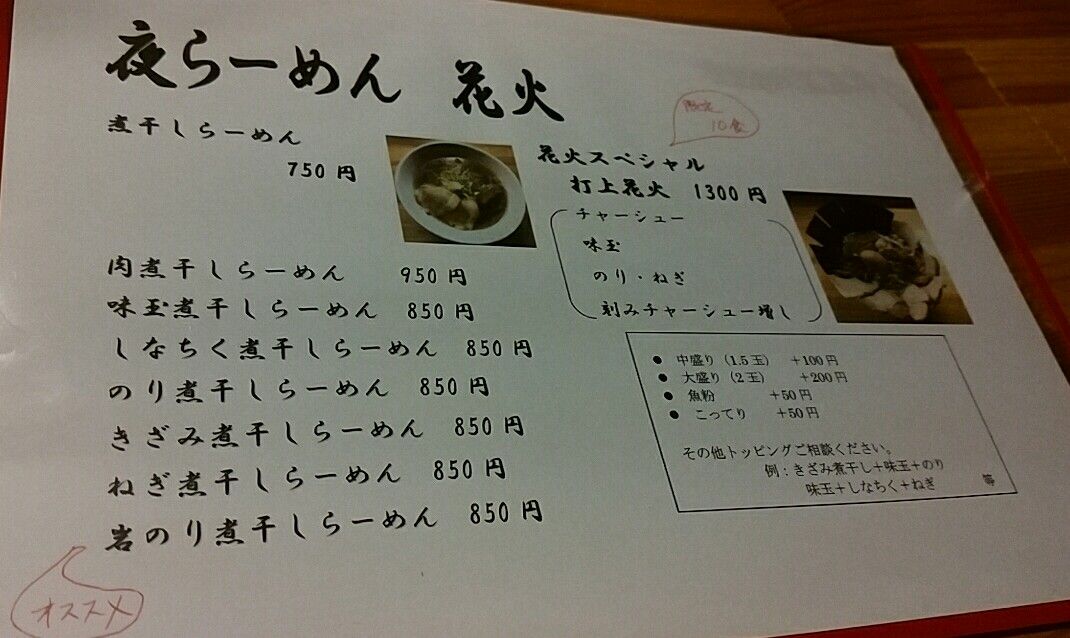 夜らーめん 花火
煮干しらーめん
750円
肉煮干しらーめん 950円
味玉煮干しらーめん 850円
しなちく煮干しらーめん 850円
のり煮干しらーめん 850円
きざみ煮干しらーめん 850円
ねぎ煮干しらーめん 850円
岩のり煮干しらーめん 850円
オススメ
限定
10食
花火スペシャル
打上花火 1300円
チャーシュー
味玉
のり・ねぎ
刻みチャーシュー増し
● 中盛り（1.5玉） ＋100円
● 大盛り（2玉） ＋200円
● 魚粉 ＋50円
● こってり ＋50円
その他トッピングご相談ください。
例：きざみ煮干し＋味玉＋のり
味玉＋しなちく＋ねぎ 等